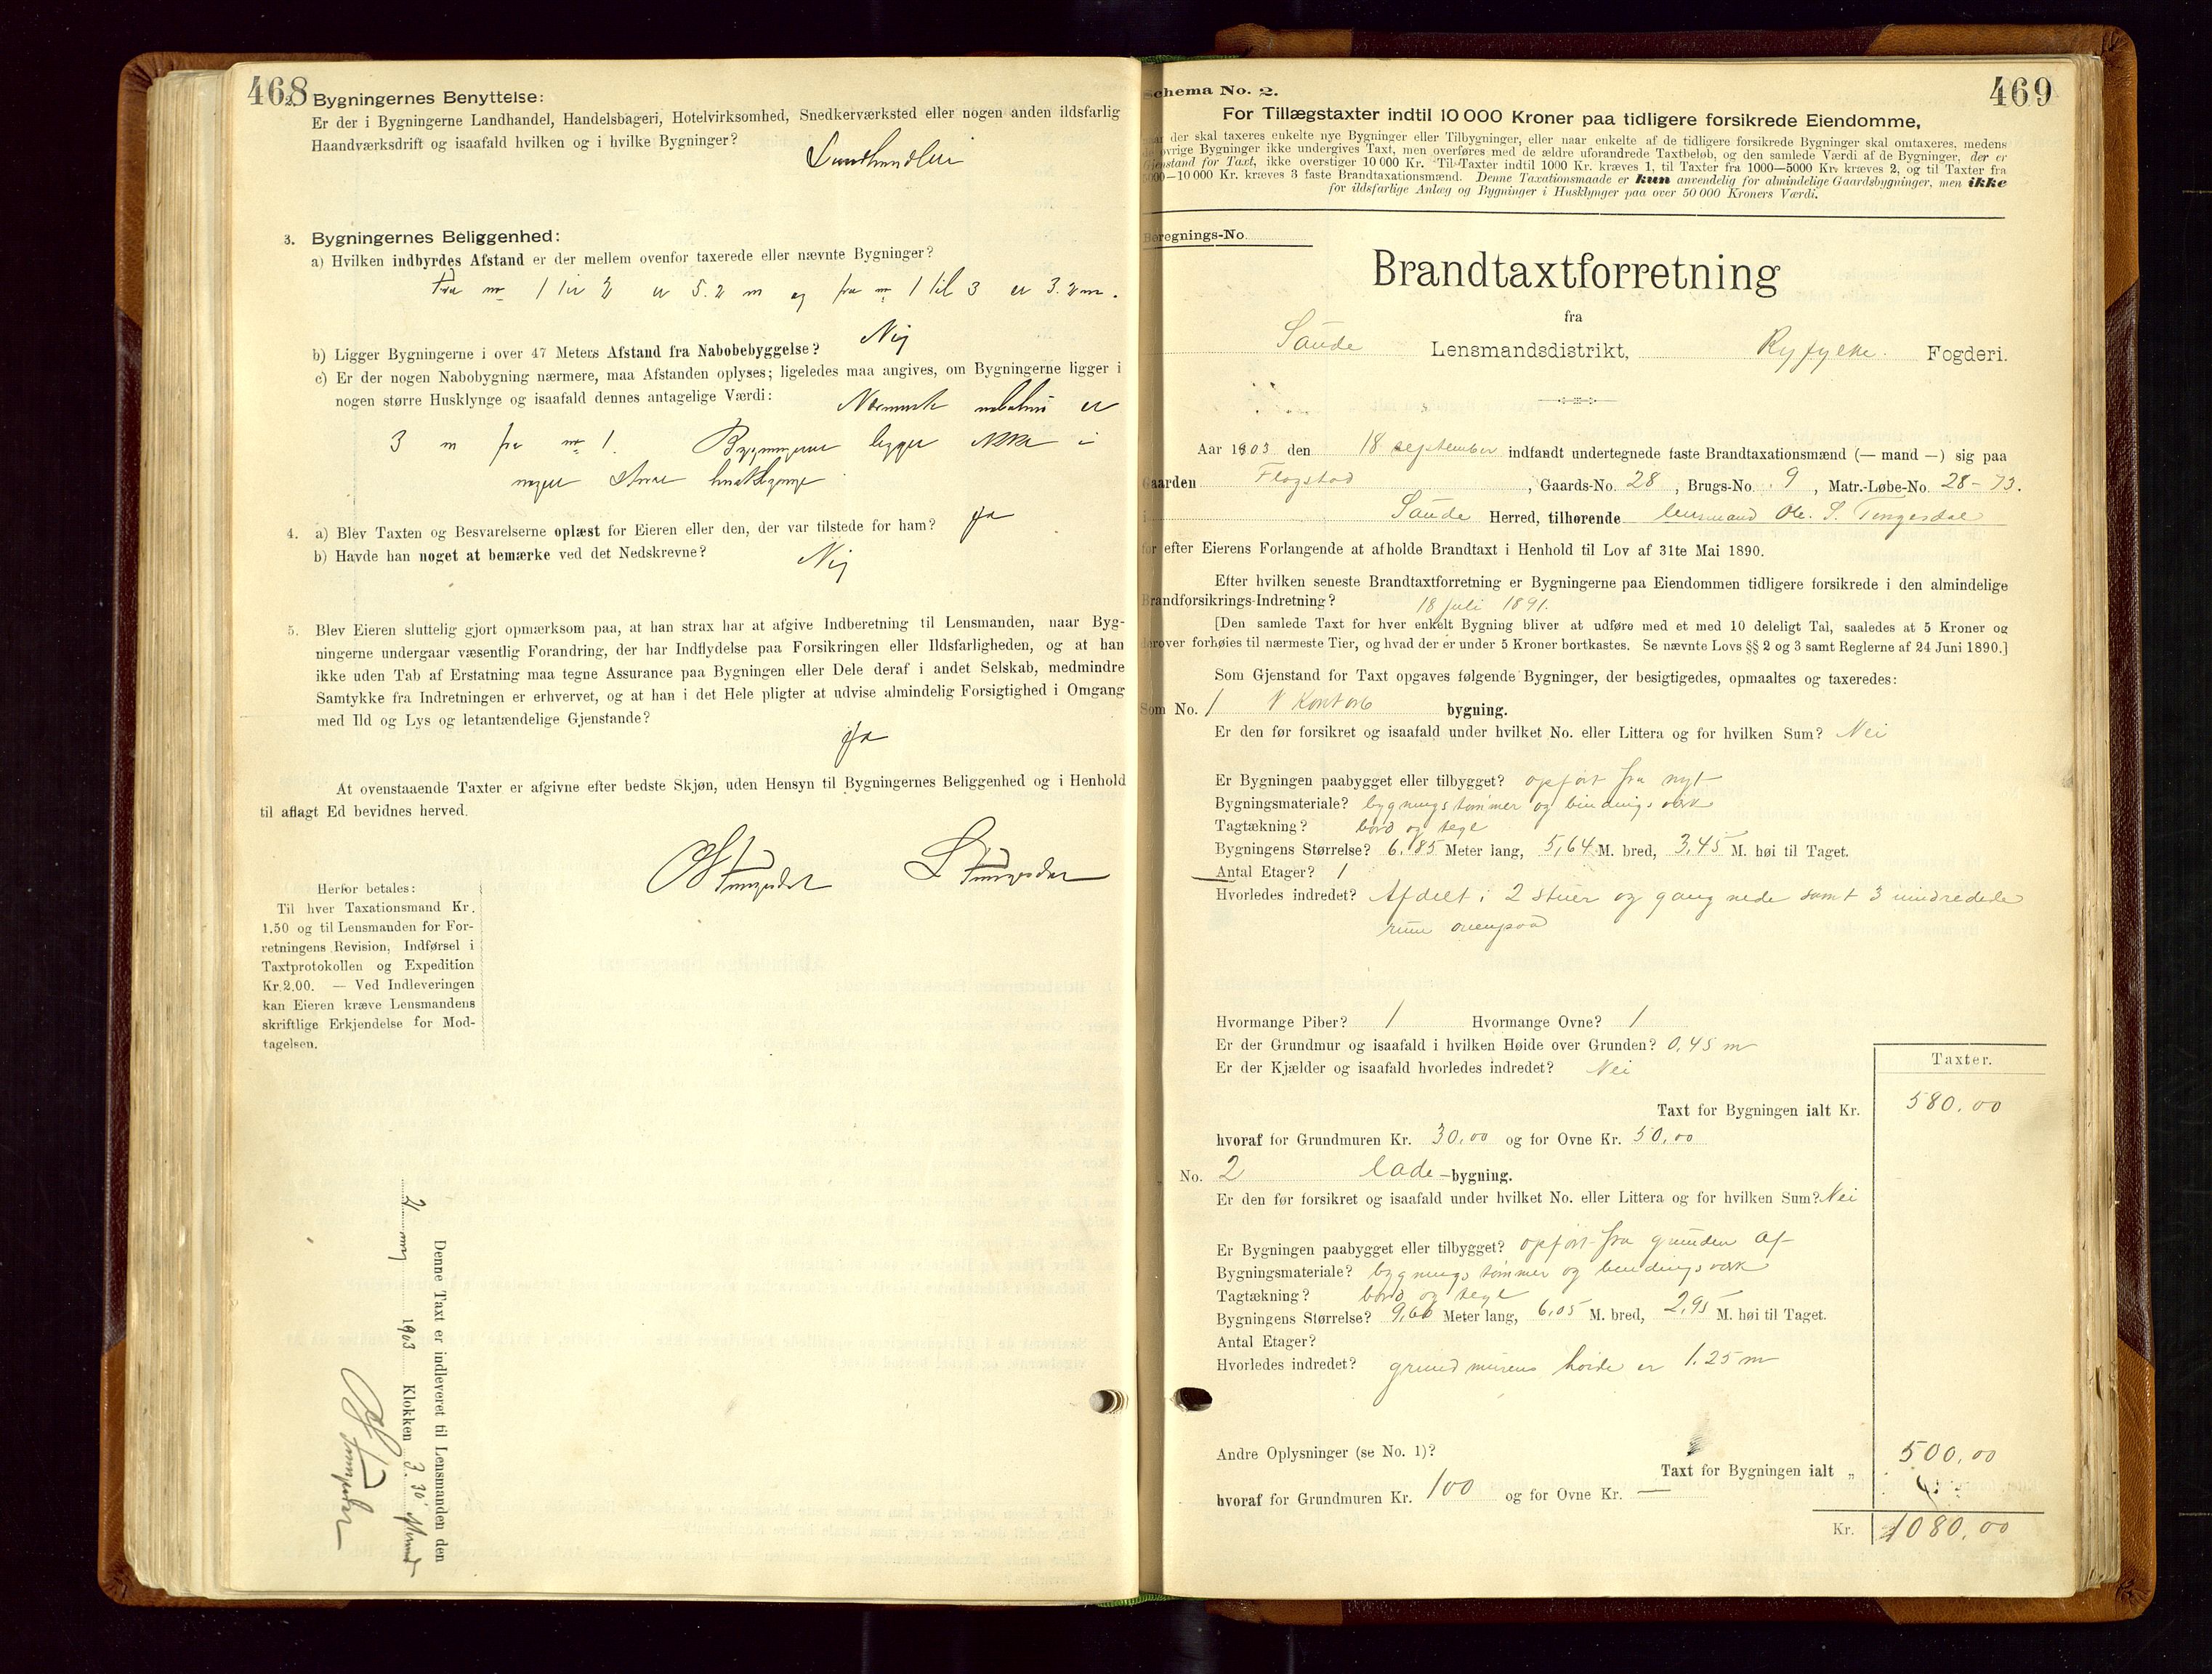 468
2. Bygningernes Benyttelse:
Er der i Bygningerne Landhandel, Handelsbageri, Hotelvirksomhed, Snedkerværksted eller nogen anden ildsfarlig
Haandværksdrift og isaafald hvilken og i hvilke Bygninger? Landhandleri
3. Bygningernes Beliggenhed:
a) Hvilken indbyrdes Afstand er der mellem ovenfor taxerede eller nævnte Bygninger?
Fra nr 1 til 2 er 5.2 m og fra nr 1 til 3 er 3.2 m.
b) Ligger Bygningerne i over 47 Meters Afstand fra Nabobebyggelse? Nej
c) Er der nogen Nabobygning nærmere, maa Afstanden oplyses; ligeledes maa angives, om Bygningerne ligger i
nogen større Husklynge og isaafald dennes antagelige Værdi: Nærmeste nabohus er
3 m fra nr 1. Bygningerne ligger ikke i
nogen større husklynge
4. a) Blev Taxten og Besvarelserne oplæst for Eieren eller den, der var tilstede for ham? Ja
b) Havde han noget at bemærke ved det Nedskrevne? Nej
5. Blev Eieren sluttelig gjort opmærksom paa, at han strax har at afgive Indberetning til Lensmanden, naar Byg-
ningerne undergaar væsentlig Forandring, der har Indflydelse paa Forsikringen eller Ildsfarligheden, og at han
ikke uden Tab af Erstatning maa tegne Assurance paa Bygningen eller Dele deraf i andet Selskab, medmindre
Samtykke fra Indretningen er erhvervet, og at han i det Hele pligter at udvise almindelig Forsigtighed i Omgang
med Ild og Lys og letantændelige Gjenstande?
Ja
At ovenstaaende Taxter er afgivne efter bedste Skjøn, uden Hensyn til Bygningernes Beliggenhed og i Henhold
til aflagt Ed bevidnes herved.
Herfor betales:
Til hver Taxationsmand Kr.
1.50 og til Lensmanden for For-
retningens Revision, Indførsel i
Taxtprotokollen og Expedition
Kr. 2.00. — Ved Indleveringen
kan Eieren kræve Lensmandens
skriftlige Erkjendelse for Mod-
tagelsen.
Denne Taxt er indleveret til Lensmanden den
1903 Klokken 3.30
469
Schema No. 2.
For Tillægstaxter indtil 10 000 Kroner paa tidligere forsikrede Eiendomme,
naar der skal taxeres enkelte nye Bygninger eller Tilbygninger, eller naar enkelte af de tidligere forsikrede Bygninger skal omtaxeres, medens
de øvrige Bygninger ikke undergives Taxt, men overføres med de ældre uforandrede Taxtbeløb, og den samlede Værdi af de Bygninger, der er
Gjenstand for Taxt, ikke overstiger 10 000 Kr. Til Taxter indtil 1000 Kr. kræves 1, til Taxter fra 1000—5000 Kr. kræves 2, og til Taxter fra
5000—10 000 Kr. kræves 3 faste Brandtaxationsmænd. Denne Taxationsmaade er kun anvendelig for almindelige Gaardsbygninger, men ikke
for ildsfarlige Anlæg og Bygninger i Husklynger paa over 50 000 Kroners Værdi.
Beregnings-No.
Brandtaxtforretning
fra
Saude Lensmandsdistrikt, Ryfylke. Fogderi.
Aar 1903 den 18 september indfandt undertegnede faste Brandtaxationsmænd (— mand —) sig paa
Gaarden Flogstad, Gaards-No. 28, Brugs-No. 9, Matr.-Løbe-No. 28-73.
i Saude Herred, tilhørende lensmand Ole. S. Tengesdal
for efter Eierens Forlangende at afholde Brandtaxt i Henhold til Lov af 31te Mai 1890.
Efter hvilken seneste Brandtaxtforretning er Bygningerne paa Eiendommen tidligere forsikrede i den almindelige
Brandforsikrings-Indretning? 18 juli 1891.
[Den samlede Taxt for hver enkelt Bygning bliver at udføre med et med 10 deleligt Tal, saaledes at 5 Kroner og
derover forhøies til nærmeste Tier, og hvad der er under 5 Kroner bortkastes. Se nævnte Lovs §§ 2 og 3 samt Reglerne af 24 Juni 1890.]
Som Gjenstand for Taxt opgaves følgende Bygninger, der besigtigedes, opmaaltes og taxeredes:
Som No. 1 Kontor bygning.
Er den før forsikret og isaafald under hvilket No. eller Littera og for hvilken Sum? Nei
Er Bygningen paabygget eller tilbygget? opført fra nyt
Bygningsmateriale? bygningstømmer og bindingsværk
Tagtækning? bord og tegl
Bygningens Størrelse? 6,85 Meter lang, 5,64 M. bred, 3,45 M. høi til Taget.
Antal Etager? 1
Hvorledes indredet? Afdelt i 2 stuer og gang nede samt 3 uindredede
rum ovenpaa
Hvormange Piber? 1 Hvormange Ovne? 1
Er der Grundmur og isaafald i hvilken Høide over Grunden? 0,45 m
Er der Kjælder og isaafald hvorledes indredet? Nei
Taxter.
Taxt for Bygningen ialt Kr. 580,00
hvoraf for Grundmuren Kr. 30,00 og for Ovne Kr. 50,00
No. 2 Lade-bygning.
Er den før forsikret og isaafald under hvilket No. eller Littera og for hvilken Sum? Nei
Er Bygningen paabygget eller tilbygget? opført fra grunden af
Bygningsmateriale? bygningstømmer og bindingsværk
Tagtækning? bord og tegl
Bygningens Størrelse? 9,60 Meter lang, 6,05 M. bred, 2,95 M. høi til Taget.
Antal Etager?
Hvorledes indredet? grundmurens høide er 1.25 m
Andre Oplysninger (se No. 1)?
Taxt for Bygningen ialt „ 500,00
hvoraf for Grundmuren Kr. 100 og for Ovne Kr. —
Kr. 1080,00